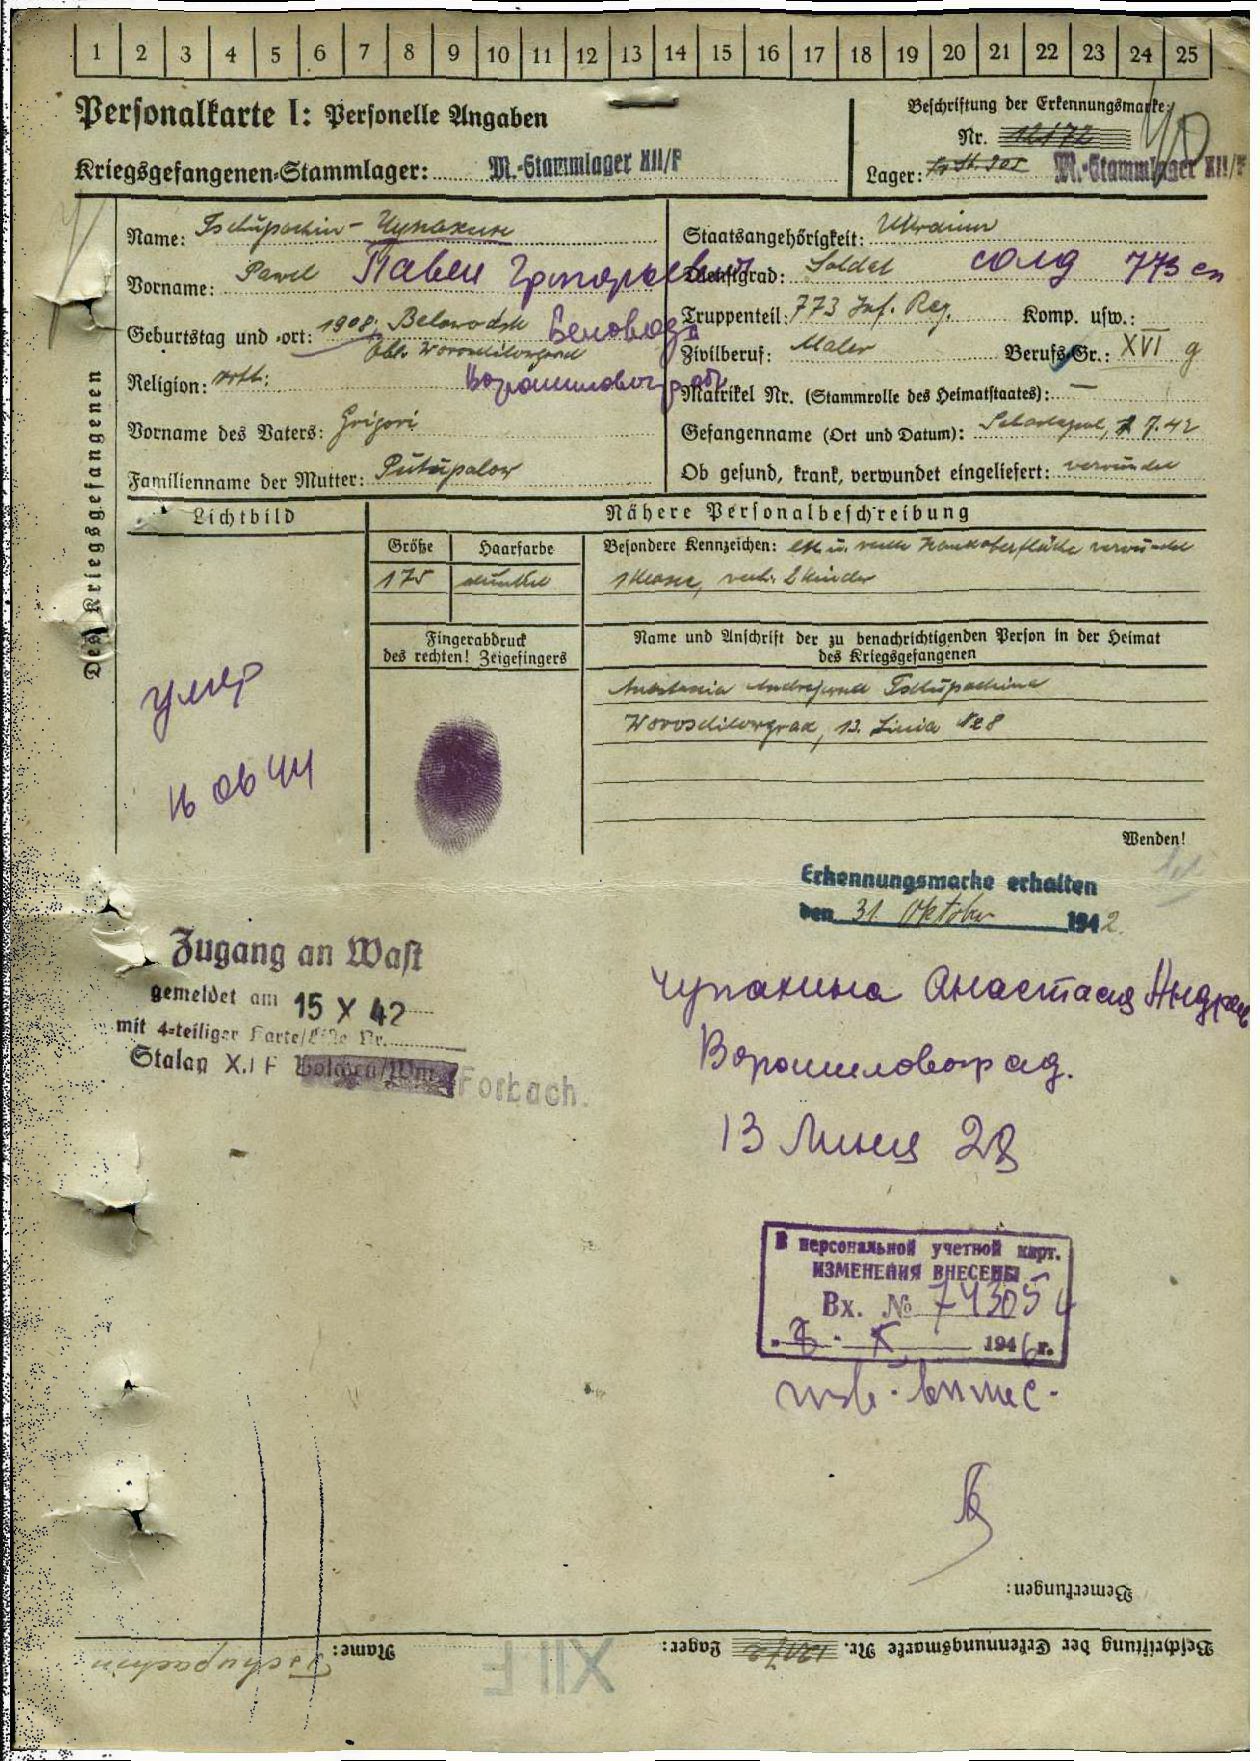 1 2 3 4 5 6 7 8 9 10 11 12 13 14 15 16 17 18 19 20 21 22 23 24 25
Personalkarte I: Personelle Angaben
Beschriftung der Erkennungsmarke:
Nr. 12172
Kriegsgefangenen-Stammlager: M.-Stammlager XII/F
Lager: M.-Stammlager XII/F
Des Kriegsgefangenen
Name: Tschupachin - Чупахин
Staatsangehörigkeit: Ukrainer
Vorname: Pawel Павел Григорьевич
Dienstgrad: Soldat солд 773 сп
Geburtstag und -ort: 1908, Belowodsk Беловодс
Truppenteil: 773 Inf. Reg. Komp. usw.:
Obl. Woroschilowgrad
Zivilberuf: Maler Berufs-Gr.: XVI g
Religion: orth: Ворошиловогр обл
Matrikel Nr. (Stammrolle des Heimatstaates): —
Vorname des Vaters: Grigori
Gefangenname (Ort und Datum): Sebastopol, 7.42
Familienname der Mutter:
Ob gesund, krank, verwundet eingeliefert: verwundet
Lichtbild
Nähere Personalbeschreibung
Größe Haarfarbe
Besondere Kennzeichen: verwundet
175 dunkel
1 Klasse, verh. 2 Kinder
Fingerabdruck
des rechten! Zeigefingers
Name und Anschrift der zu benachrichtigenden Person in der Heimat
des Kriegsgefangenen
Anastasia Andrejewna Tschupachina
Woroschilowgrad, 13. Linia № 8
умер
16 06 44
Wenden!
Erkennungsmarke erhalten
den 31. Oktober 1942.
Zugang an Wast
gemeldet am 15 X 42
mit 4-teiliger Karte/Liste Nr.
Stalag XII F Bolchen/Wm. Forbach.
Чупахина Анастасия Андреев
Ворошиловоград.
13 Линия 28
В персональной учетной карт.
ИЗМЕНЕНИЯ ВНЕСЕНЫ
Вх. № 74305
X 1946 г.
Bemerkungen:
Beschriftung der Erkennungsmarke Nr. 12172 Lager: XII F Name: Tschupachin